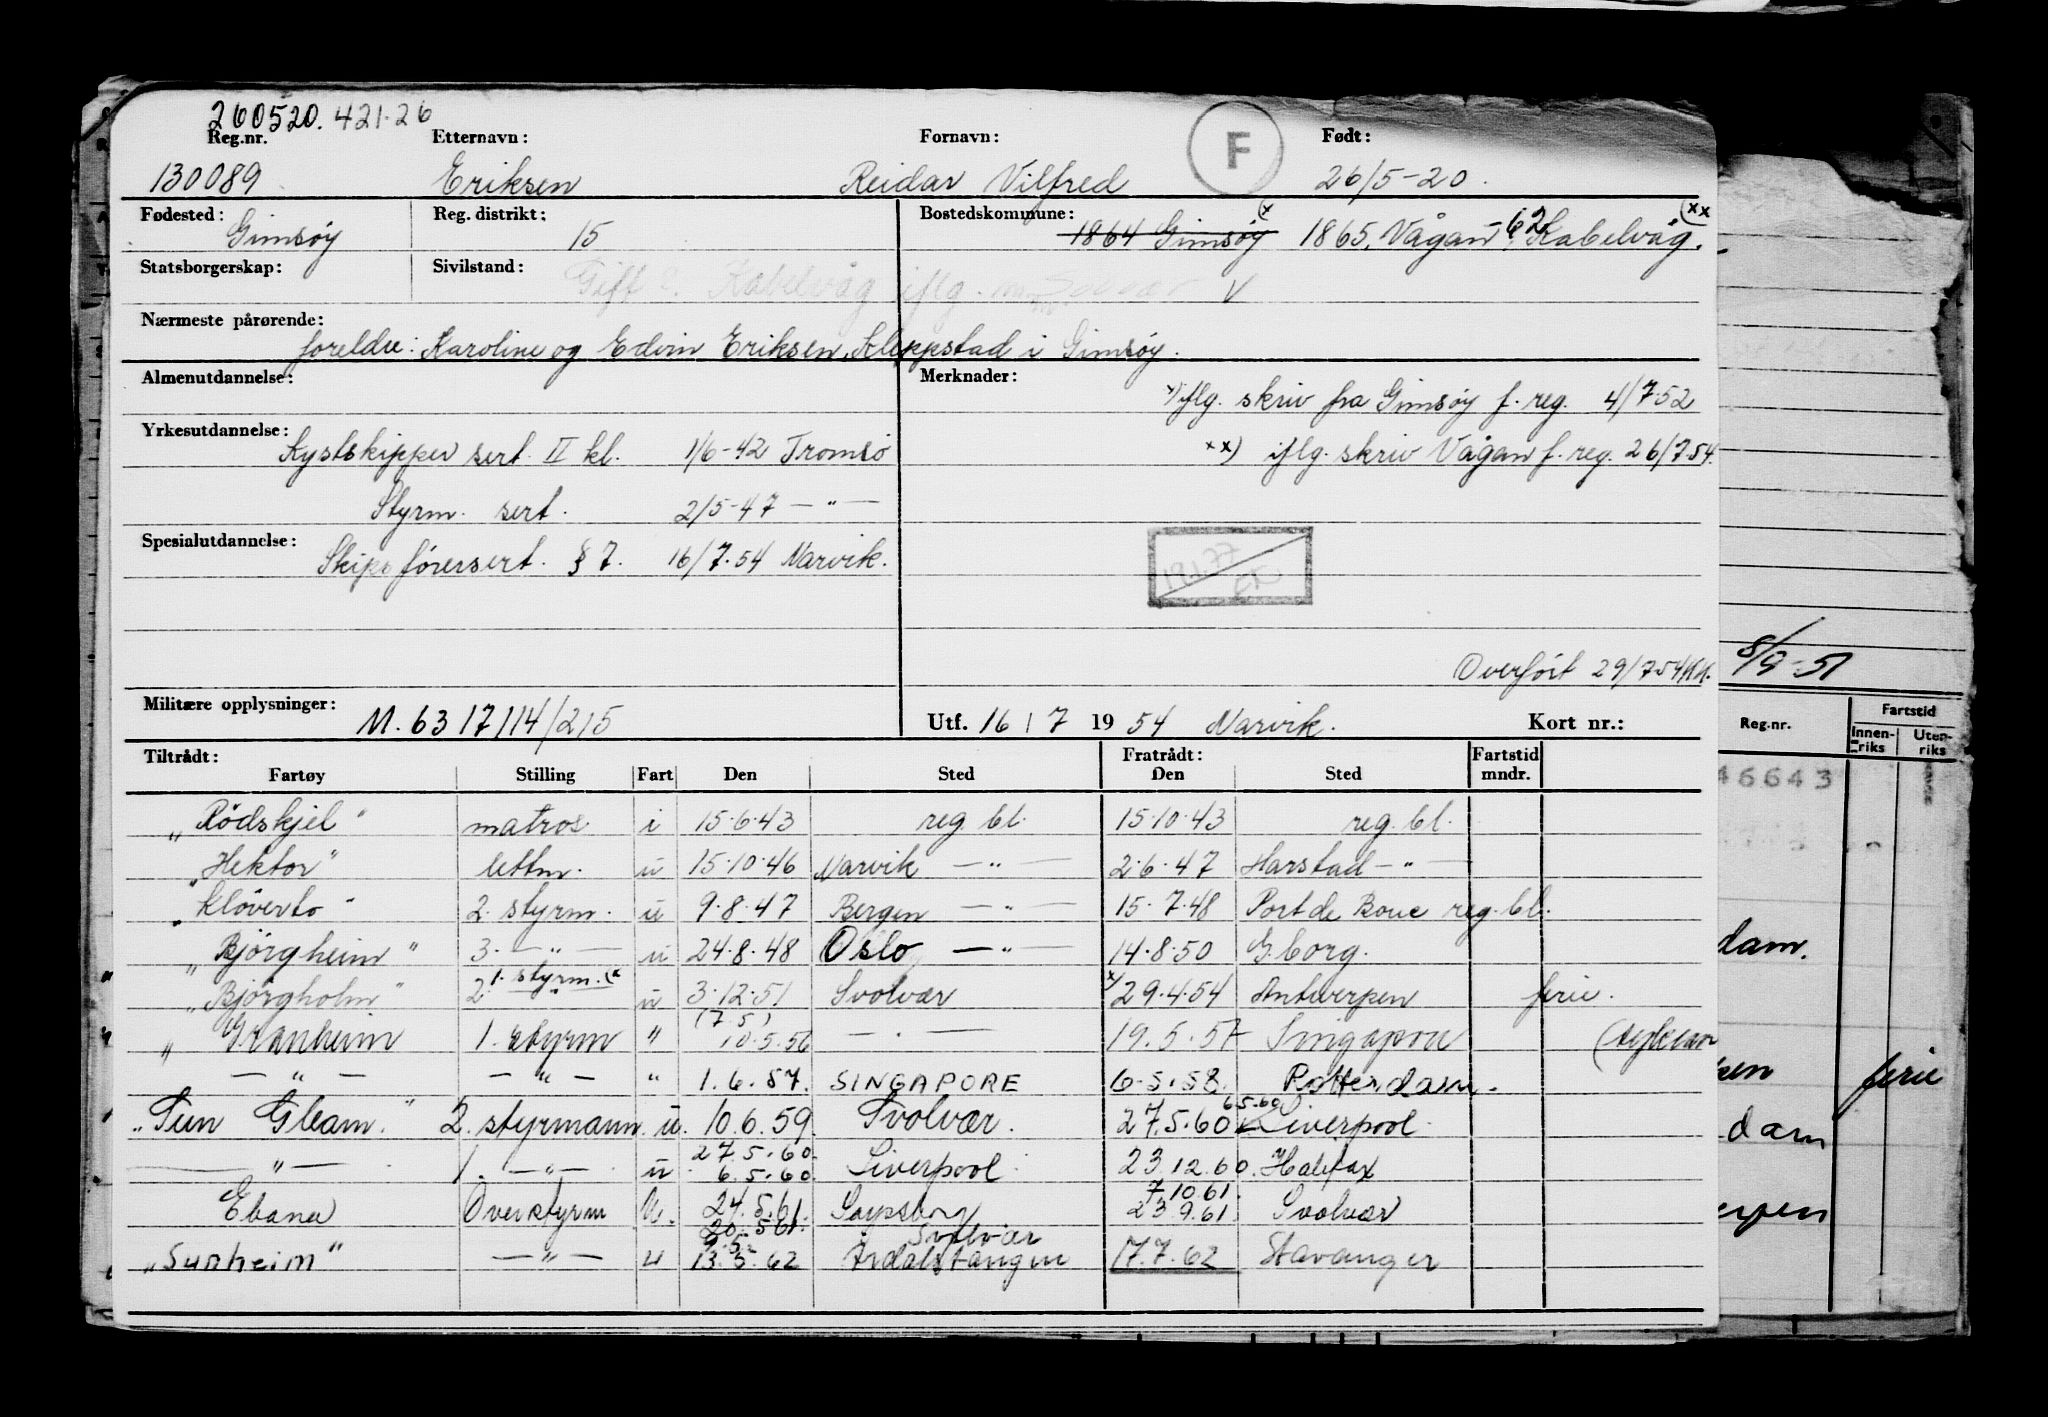 260520. 421.26
Reg.nr. Etternavn: Fornavn: F Født:
130089 Eriksen Reidar Vilfred 26/5-20.
Fødested: Reg. distrikt: Bostedskommune:
Gimsøy 15 1864 Gimsøy x) 1865, Vågan 62 Kabelvåg. xx)
Statsborgerskap: Sivilstand:
Gift Kabelvåg iflg.
Nærmeste pårørende:
foreldre: Karoline og Edvin Eriksen, Kleppstad i Gimsøy.
Almenutdannelse: Merknader:
x) iflg. skriv fra Gimsøy f. reg. 4/7-52
Yrkesutdannelse:
Kystskipper sert. II kl. 1/6-42 Tromsø
xx) iflg. skriv Vågan f. reg. 26/7.54.
Styrm. sert. 2/5-47 — " —
Spesialutdannelse:
Skipsførersert. § 7. 16/7.54 Narvik.
Overført 29/7-54
8/9-51
Militære opplysninger: M. 6317/14/215 Utf. 16/7 1954 Narvik. Kort nr.:
Reg.nr. Fartstid
Innen-riks Uten-riks
Tiltrådt: Fratrådt: Fartstid mndr.
Fartøy Stilling Fart Den Sted Den Sted
46643
"Rödskjel" matros i 15.6.43 reg. bl. 15.10.43 reg. bl.
"Hektor" lettm. u 15.10.46 Narvik — " — 2.6.47 Harstad — " —
"Klöverto" 2. styrm. u 9.8.47 Bergen — " — 15.7.48 Port de Bouc reg. bl.
"Björgheim" 3. — " — u 24.8.48 Oslo — " — 14.8.50 G.borg.
dam.
"Björgholm" 2. 1. styrm. (x u 3.12.51 Svolvær x/ 29.4.54 Antwerpen ferie.
"Granheim 1. styrm " (7.5) 10.5.56 — " — 19.5.57 Singapore
— " — — " — " 1.6.57. SINGAPORE 6.5.58. Rotterdam.
ferie
"Sun Gleam." 2. styrmann. u. 10.6.59. Svolvær. 27.5.60 6.5.60 Liverpool.
dam
— " — 1. — " — u 27.5.60. 6.5.60. Liverpool. 23.12.60. Halifax
Ebana Overstyrm U. 24.5.61. 20.5.61. Sarpsborg Svolvær 7.10.61. 23.9.61. Svolvær
"Sunheim" — " — u 9.5. 13.5.62 Årdalstangen 17.7.62 Stavanger